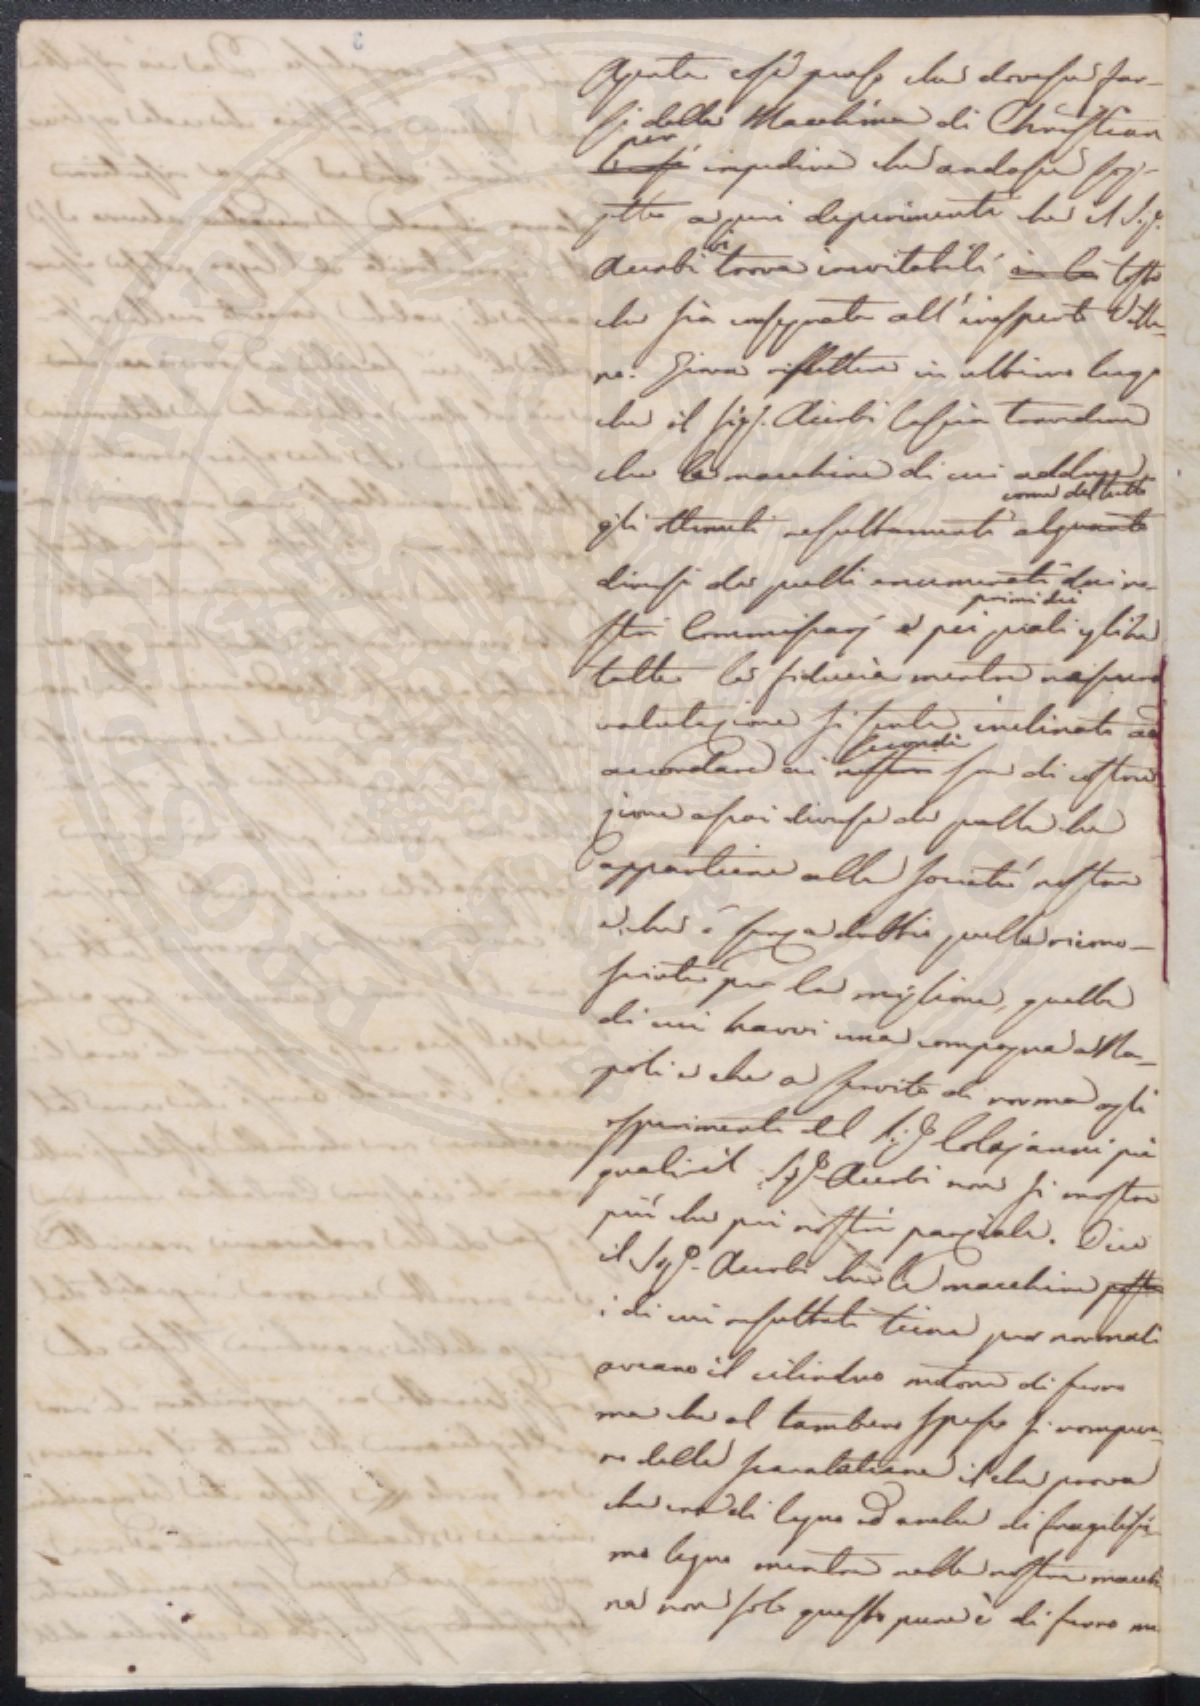 questa essi penso che dovesse far-
si della Macchina di Christian
per
e si impedire che andasse sog-
getta a quei deperimenti che il Sig.e
vi
Acerbi trova inevitabili in la tosto
che sia consegnata all' inesperto Villi-
co. Giova riflettere in ultimo luogo
che il Sig.e Acerbi lascia travedere
che le macchine di cui adduce
come del tutto
gli ottenuti resultamenti alquanto
diversi da quelli enumerati dai no-
primi dei
stri Commissarj e pei quali gli ha
tutta la fiducia mentre nessuna
valutazione si sente inclinato ad
secondi
accordare ai nostri son di costru
zione assai diversa da quella che
appartiene alla società nostra
e che è senza dubbio quella ricono-
sciuta per la migliore, quella
di cui havvi una compagna a Na-
poli e che a servito di norma agli
esperimenti del Sig.e Colajanni pei
quali il Sig.e Acerbi non si mostra
più che pei nostri parziale. Dice
il Sig.e Acerbi che le macchine
i di cui resultati tiene per normali
aveano il cilindro motore di ferro
ma che al tamburo spesso si rompeva-
no delle scanalature il che prova
che era di legno ed anche di fragilissi-
mo legno mentre nella nostra macchi
na non solo questo pure è di ferro ma